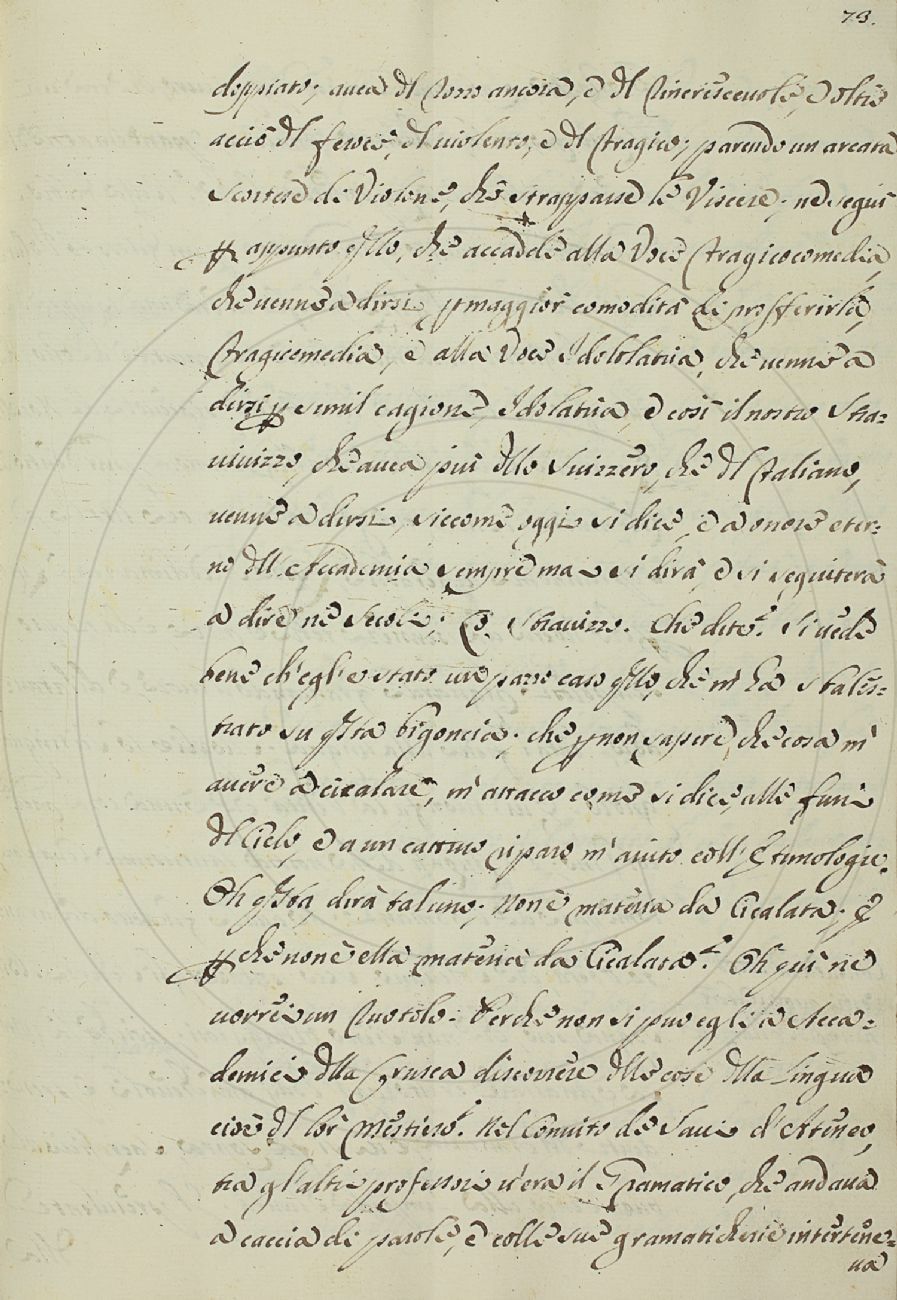 73.
doppiato; avea dl Rozzo ancora, e dl Rincrescevole, e oltre
acciò dl feroce, dl violento, e dl Tragico; parendo un arcata
scorrere di Violone, che strappasse le Viscere; ne seguì
ꝑ appunto qllo, che accadde alla Voce Tragicocomedia,
che venne a dirsi, ꝑ maggior comodità di profferirla,
Tragicomedia, e alla Voce Idololatria, che venne a
dirsi ꝑ simil cagione, Idolatria, e così il nostro Stra=
vivizzo, che avea più dllo Svizzero, che dl Italiano,
venne a dirsi, siccome oggi si dice, e a onore eter=
no dll'Accademia sempre mai si dirà, e si seguiterà
a dire ne' Secoli; Lo Stravizzo. Che dite? Si vede
bene ch'egl'è stato un pazzo caso qllo, che m'ha sbales=
trato su qsta bigoncia; che ꝑ non sapere, che cosa m'
avere a cicalare, m'attacco come si dice, alle funi
dl Cielo, e a un cattivo riparo m'aiuto coll'Etimologie.
Oh qsta, dirà taluno; non è materia da Cicalata; E
ꝑchè non è ella materia da Cicalata? Oh qui ne
vorrei un Ruotolo. Perchè non si può egli a Acca=
demici dlla Crusca discorrere dlle cose dlla Lingua
cioè dl lor mestiero? Nel Convito de Savi d'Ateneo,
tra gl'altri professori v'era il Gramatico, che andava
a caccia di parole, e colle sue gramaticherie intertene=
va